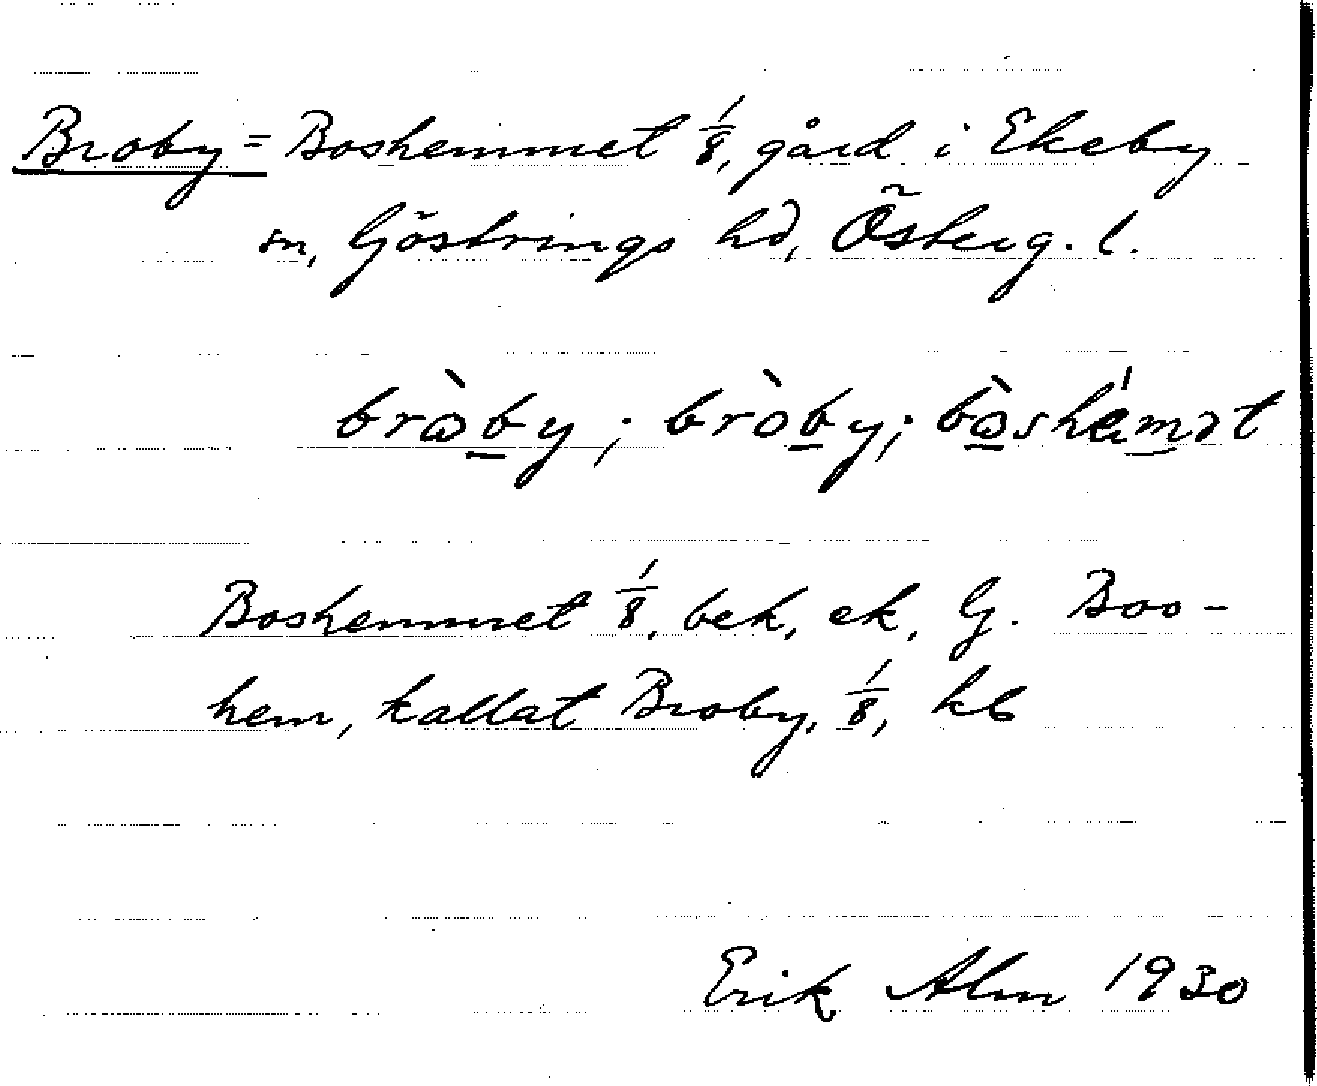 Broby = Boshemmet 1/8, gård i Ekeby
sn, Göstrings hd, Österg. l.
brɷ̀by; bròby; bɷ̀shémət
Boshemmet 1/8, bek, ek, G. Boo-
hem, kallat Broby, 1/8, kb
Erik Alm 1930